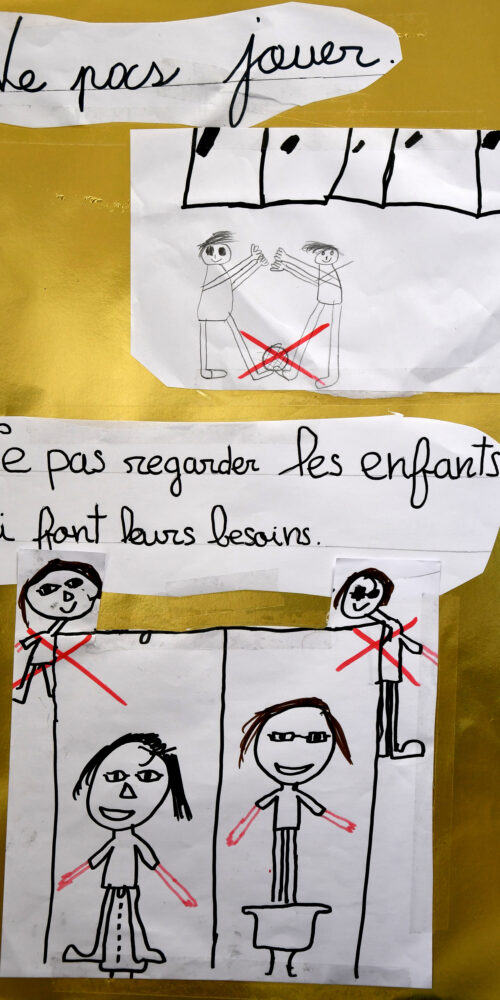 Ne pas jouer.
Ne pas regarder les enfants
qui font leurs besoins.